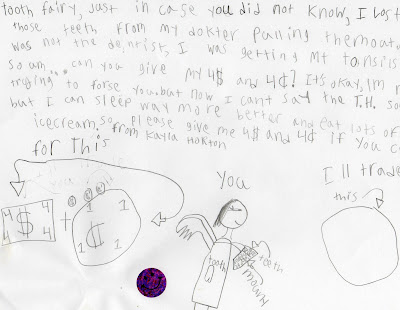 tooth fairy, just in case you did not know, I lost
those teeth from my dokter palling themoat
was not the dentist, I was getting Mt tonsis
so um... can you give my 4$ and 4¢? It's okay, Im n
trying to forse you. but now I cant say the T.H. sou
but I can sleep way more better and eat lots of
icecream. so please give me 4$ and 4¢ if you c
from Kayla Horton
for This
you
I ll trade
this
4 4 $ 4 4
+
1 1 ¢ 1 1
tooth
teeth
mouny